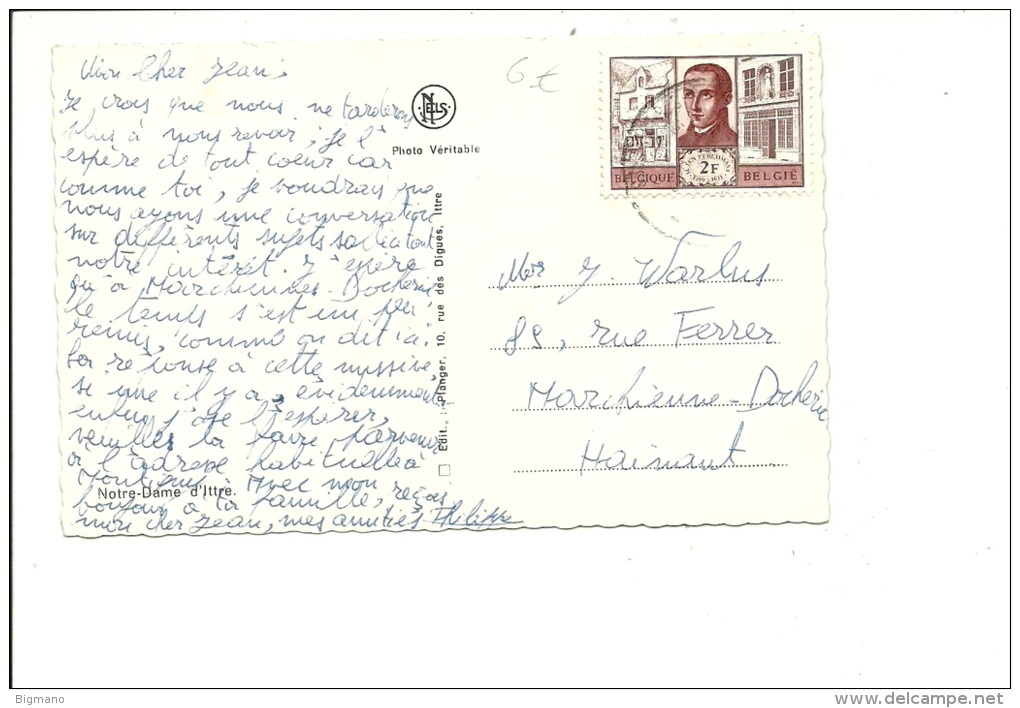 Mon Cher Jean,
Je crois que nous ne tarderons
plus à nous revoir, je l'
espère de tout coeur car
comme toi, je voudrais que
nous ayons une conversation
sur différents sujets
notre intérêt. J'espère
qu'à Marchienne-Docherie
le temps s'est un peu
remis, comme on dit
réponse à cette missive,
si une il y a, évidemment
j'ose l'espérer,
veuilles la faire parvenir
à l'adresse habituelle à
Avec mon
bonjour à ta famille, reçois,
mon cher Jean, mes amitiés Philippe
Notre-Dame d'Ittre.
6 €
NELS
Photo Véritable
Edit. : Planger, 10, rue des Digues, Ittre
BELGIQUE 2F BELGIË
Mr J. Warlus
89, rue Ferrer
Marchienne-Docherie
Hainaut
Bigmano
delcampe.net